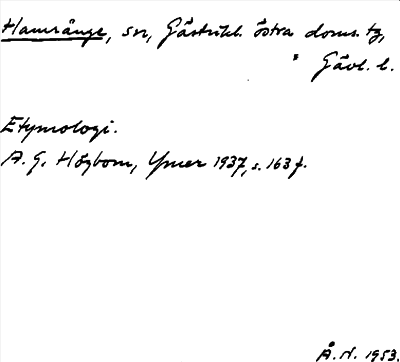 Hamrånge, sn, Gästrikl. östra doms. tg,
Gävl. l.
Etymologi.
A. G. Högbom, Ymer 1937, s. 163 f.
Å. N. 1953.